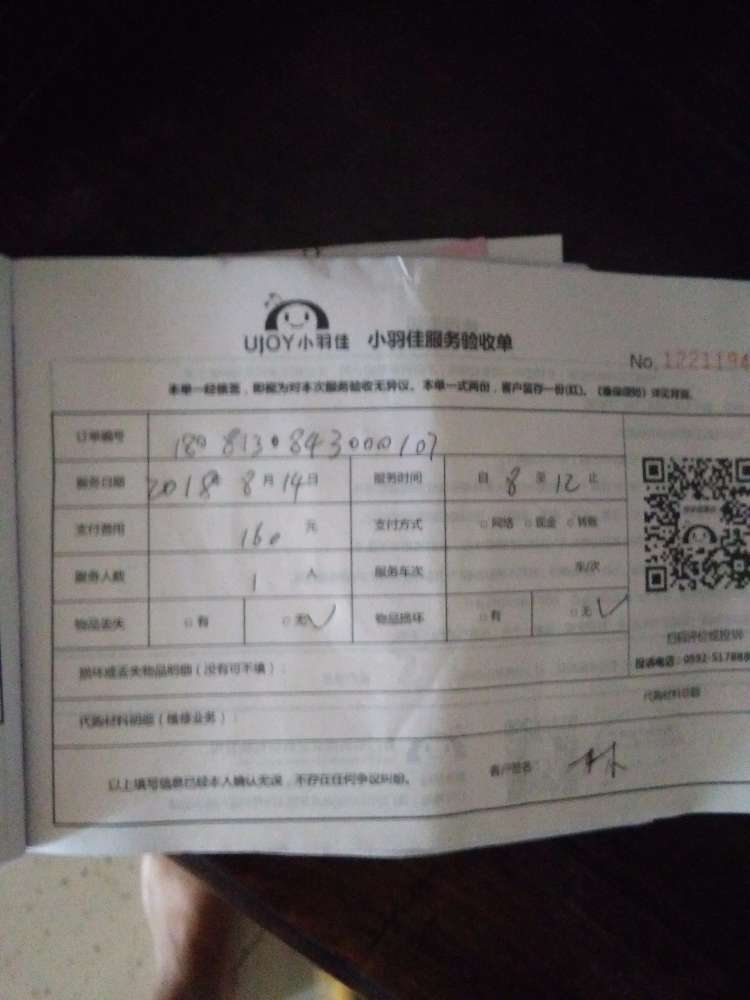 UJOY小羽佳 小羽佳服务验收单
No. 1221194
本单一经签签，即视为对本次服务验收无异议。本单一式两份，客户留存一份(红)。《售保须知》详见背面。
订单编号 1808130843000107
服务日期 2018年 8月14日 服务时间 自 8 至 12 止
支付费用 160 元 支付方式 □网络 □现金 □转账
服务人数 1 人 服务车次 车/次
物品丢失 □有 □无✓ 物品损坏 □有 □无✓
扫码评价或投诉
投诉电话：0592-517888
损坏或丢失物品明细（没有可不填）：
代购材料明细（维修业务）： 代购材料总额
以上填写信息已经本人确认无误，不存在任何争议纠纷。 客户签名： 林